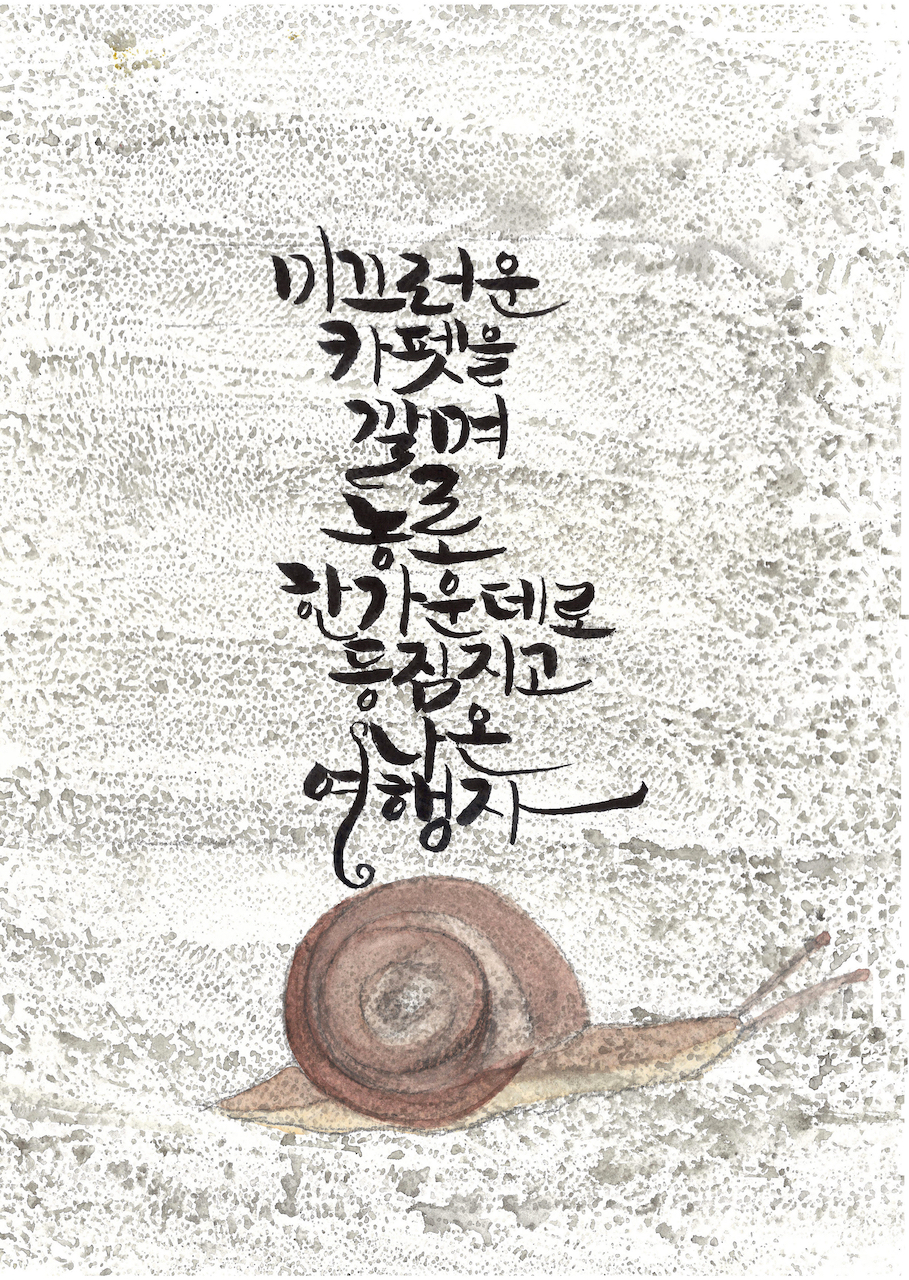 미끄러운
카펫을
깔며
농로
한가운데로
등짐지고
나온
여행자